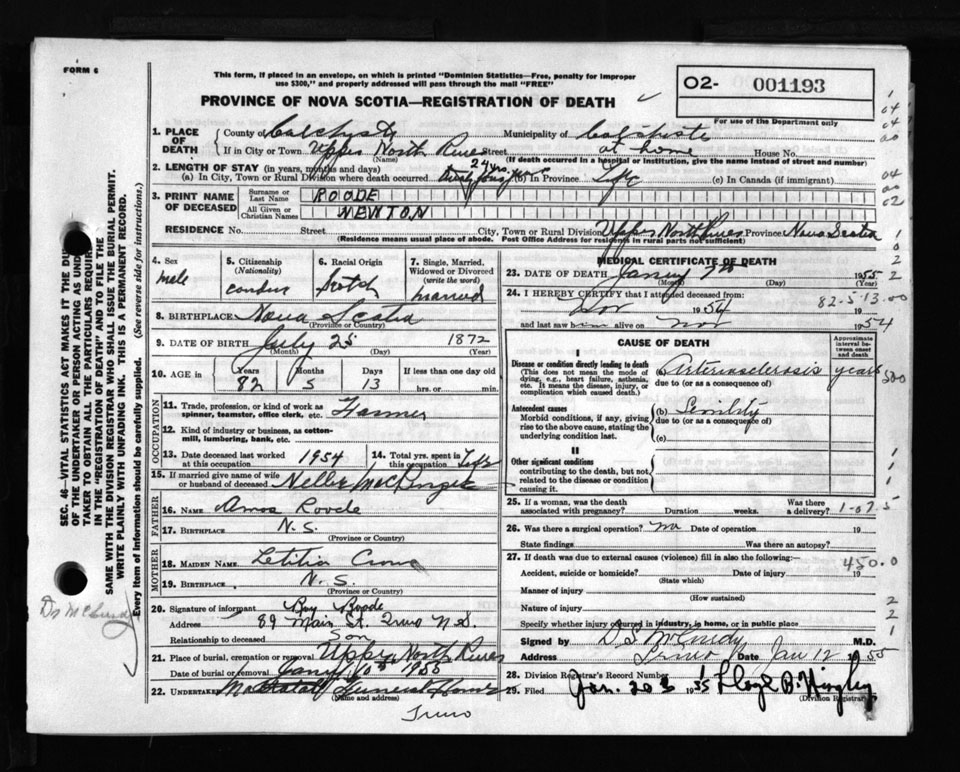 FORM 6
This form, if placed in an envelope, on which is printed "Dominion Statistics—Free, penalty for improper
use $300," and properly addressed will pass through the mail "FREE"
O2- 001193
PROVINCE OF NOVA SCOTIA—REGISTRATION OF DEATH
For use of the Department only
1. PLACE OF DEATH
County of Municipality of
If in City or Town Upper North River Street at home House No.
(Name) (If death occurred in a hospital or institution, give the name instead of street and number)
2. LENGTH OF STAY (in years, months and days)
(a) In City, Town or Rural Division where death occurred (b) In Province Life (c) In Canada (if immigrant)
3. PRINT NAME OF DECEASED
Surname or Last Name ROODE
All Given or Christian Names NEWTON
RESIDENCE No. Street City, Town or Rural Division Upper North River Province Nova Scotia
(Residence means usual place of abode. Post Office Address for residents in rural parts not sufficient)
4. Sex male
5. Citizenship (Nationality)
6. Racial Origin Scotch
7. Single, Married, Widowed or Divorced (write the word) married
8. BIRTHPLACE Nova Scotia
(Province or Country)
9. DATE OF BIRTH July 25 1872
(Month) (Day) (Year)
10. AGE in Years 82 Months 5 Days 13 If less than one day hrs. or min.
OCCUPATION
11. Trade, profession, or kind of work as spinner, teamster, office clerk, etc. Farmer
12. Kind of industry or business, as cotton-mill, lumbering, bank, etc.
13. Date deceased last worked at this occupation 1954
14. Total yrs. spent in this occupation Life
15. If married give name of wife or husband of deceased Nellie McKenzie
FATHER
16. NAME Amos Roode
17. BIRTHPLACE N.S.
(Province or Country)
MOTHER
18. MAIDEN NAME Letitia
19. BIRTHPLACE N.S.
(Province or Country)
20. Signature of informant Roy Roode
Address 89 Main St. Truro N.S.
Relationship to deceased Son
21. Place of burial, cremation or removal Upper North River
Date of burial or removal Jany 10th 1955
22. UNDERTAKER Funeral Home
(Name and address)
Truro
MEDICAL CERTIFICATE OF DEATH
23. DATE OF DEATH 7th 1955
(Month) (Day) (Year)
24. I HEREBY CERTIFY that I attended deceased from:
82-5-13-00
Nov 1954 to 19
and last saw him alive on Nov 1954
CAUSE OF DEATH
Approximate interval between onset and death
I
Disease or condition directly leading to death
(This does not mean the mode of dying, e.g., heart failure, asthenia, etc. It means the disease, injury, or complication which caused death.)
(a) Arteriosclerosis years
due to (or as a consequence of)
500
Antecedent causes
Morbid conditions, if any, giving rise to the above cause, stating the underlying condition last.
(b) Senility
due to (or as a consequence of)
(c)
II
Other significant conditions
contributing to the death, but not related to the disease or condition causing it.
25. If a woman, was the death associated with pregnancy? Duration weeks. Was there a delivery?
26. Was there a surgical operation? no Date of operation 19
State findings Was there an autopsy?
27. If death was due to external causes (violence) fill in also the following:—
450.0
Accident, suicide or homicide? Date of injury 19
(State which)
Manner of injury
(How sustained)
Nature of injury
Specify whether injury occurred in industry, in home, or in public place
Signed by M.D.
Address Truro Date Jan 12 1955
28. Division Registrar's Record Number
29. Filed Jan. 20 1955
(Division Registrar)
SEC. 46—VITAL STATISTICS ACT MAKES IT THE DUTY
OF THE UNDERTAKER OR PERSON ACTING AS UNDER-
TAKER TO OBTAIN ALL THE PARTICULARS REQUIRED
IN THE "REGISTRATION OF DEATH" AND TO FILE THE
SAME WITH THE DIVISION REGISTRAR WHO SHALL ISSUE THE BURIAL PERMIT.
WRITE PLAINLY WITH UNFADING INK. THIS IS A PERMANENT RECORD.
Every item of information should be carefully supplied. (See reverse side for instructions.)